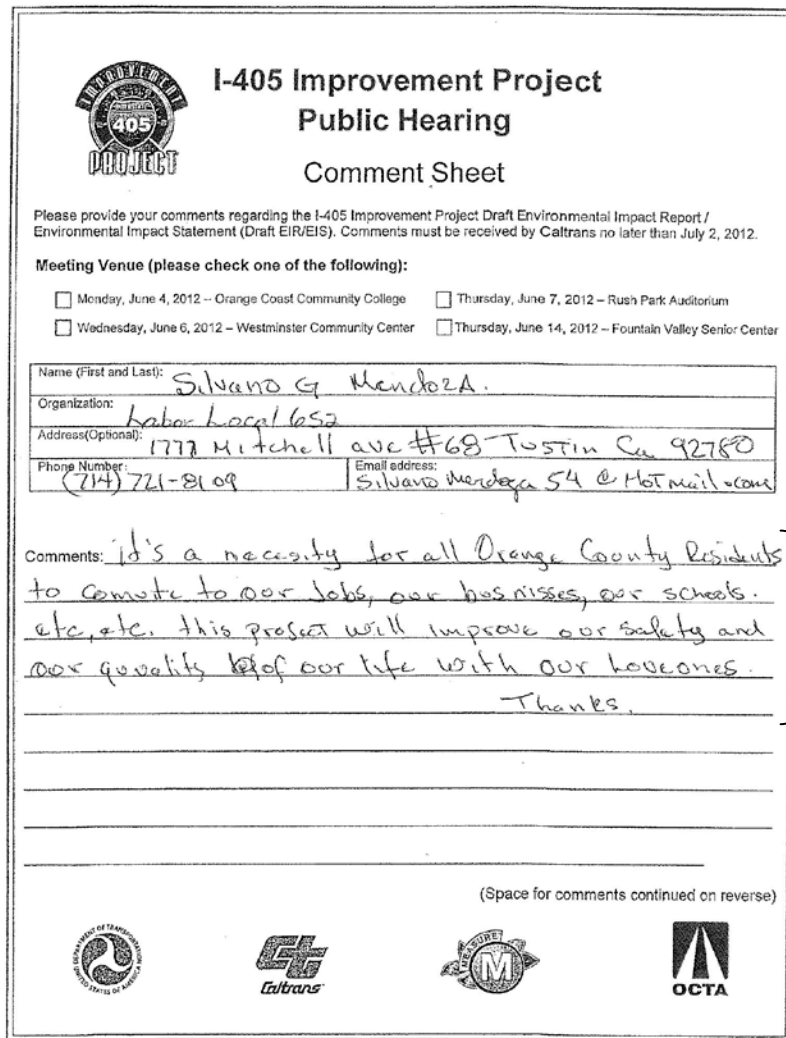 IMPROVEMENT
INTERSTATE
405
PROJECT
I-405 Improvement Project
Public Hearing
Comment Sheet
Please provide your comments regarding the I-405 Improvement Project Draft Environmental Impact Report /
Environmental Impact Statement (Draft EIR/EIS). Comments must be received by Caltrans no later than July 2, 2012.
Meeting Venue (please check one of the following):
Monday, June 4, 2012 – Orange Coast Community College
Thursday, June 7, 2012 – Rush Park Auditorium
Wednesday, June 6, 2012 – Westminster Community Center
Thursday, June 14, 2012 – Fountain Valley Senior Center
Name (First and Last): Silvano G Mendoza.
Organization: Labor Local 652
Address(Optional): 1777 Mitchell ave #68 Tustin Ca 92780
Phone Number: (714) 721-8109
Email address: Silvano Mendoza 54 @ HoTmail.com
Comments: it's a necesity for all Orange County Residents
to comute to our Jobs, our busnisses, our schools.
etc, etc. this project will improve our safety and
our quvality of our life with our Loveones.
Thanks.
(Space for comments continued on reverse)
DEPARTMENT OF TRANSPORTATION
UNITED STATES OF AMERICA
Caltrans
MEASURE
M
OCTA